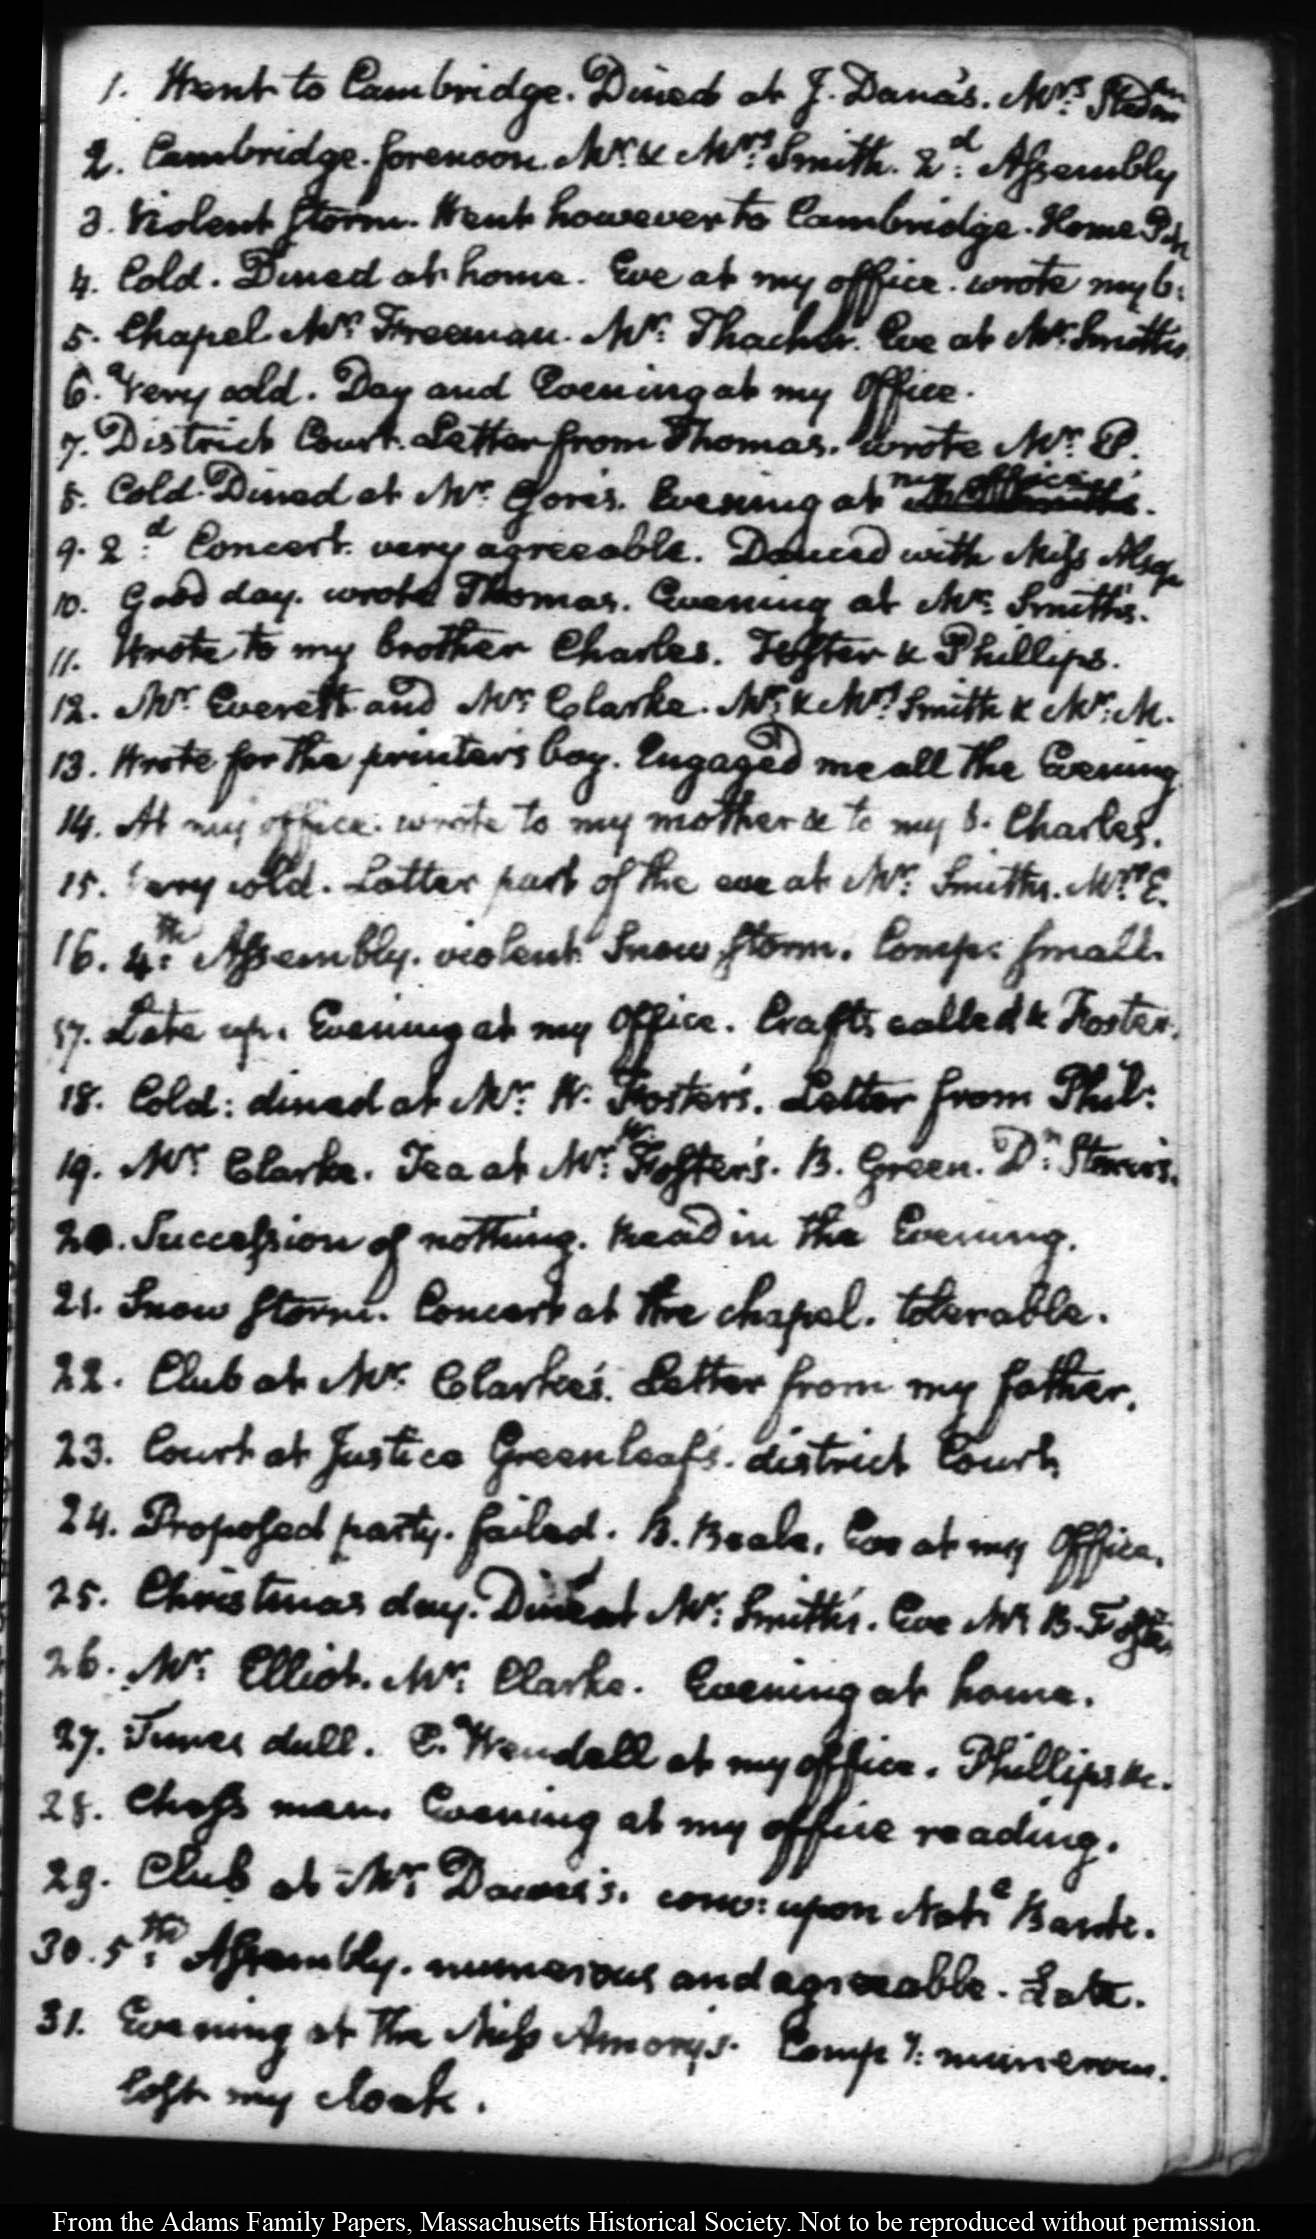 1. Went to Cambridge. Dined at J. Dana's. Mrs.
2. Cambridge. forenoon. Mr: & Mrs: Smith. 2d: Assembly
3. Violent storm. Went however to Cambridge. Home
4. Cold. Dined at home. Eve at my office. wrote my b:
5. Chapel Mr: Freeman. Mr: Thacher. Eve at Mr: Smith's
6. Very cold. Day and Evening at my Office.
7. District Court. Letter from Thomas. wrote Mr: P.
8. Cold. Dined at Mr: Gore's. Evening at my office.
9. 2d: Concert. very agreeable. Danced with Miss
10. Good day. wrote Thomas. Evening at Mr: Smith's.
11. Wrote to my brother Charles. Foster & Phillips.
12. Mr: Everett and Mr: Clarke. Mr: & Mrs: Smith & Mr: M.
13. Wrote for the printer's boy. Engaged me all the Evening
14. At my office. wrote to my mother & to my b. Charles.
15. Very cold. Latter part of the eve at Mr: Smith's. Mrs: E.
16. 4th: Assembly. violent Snow storm. Comp: small.
17. Late up. Evening at my Office. Crafts called & Foster.
18. Cold: dined at Mr: W. Foster's. Letter from Phil:
19. Mr: Clarke. Tea at Mr: W. Foster's. B. Green.
20. Succession of nothing. Read in the Evening.
21. Snow storm. Concert at the chapel. tolerable.
22. Club at Mr: Clarke's. Letter from my father.
23. Court at Justice Greenleaf's. district Court
24. Proposed party. failed. B. Beale. Eve at my Office.
25. Christmas day. Dined at Mr: Smith's. Eve Mr: B. Foster
26. Mr: Elliot. Mr: Clarke. Evening at home.
27. Times dull. Wendell at my office. Phillips &c.
28. Chess men. Evening at my office reading.
29. Club at Mr: Dawes's. conv: upon Nate: Barte.
30. 5th: Assembly. numerous and agreeable. Late.
31. Evening at the Miss Amory's. Compy: numerous.
lost my cloak.
From the Adams Family Papers, Massachusetts Historical Society. Not to be reproduced without permission.